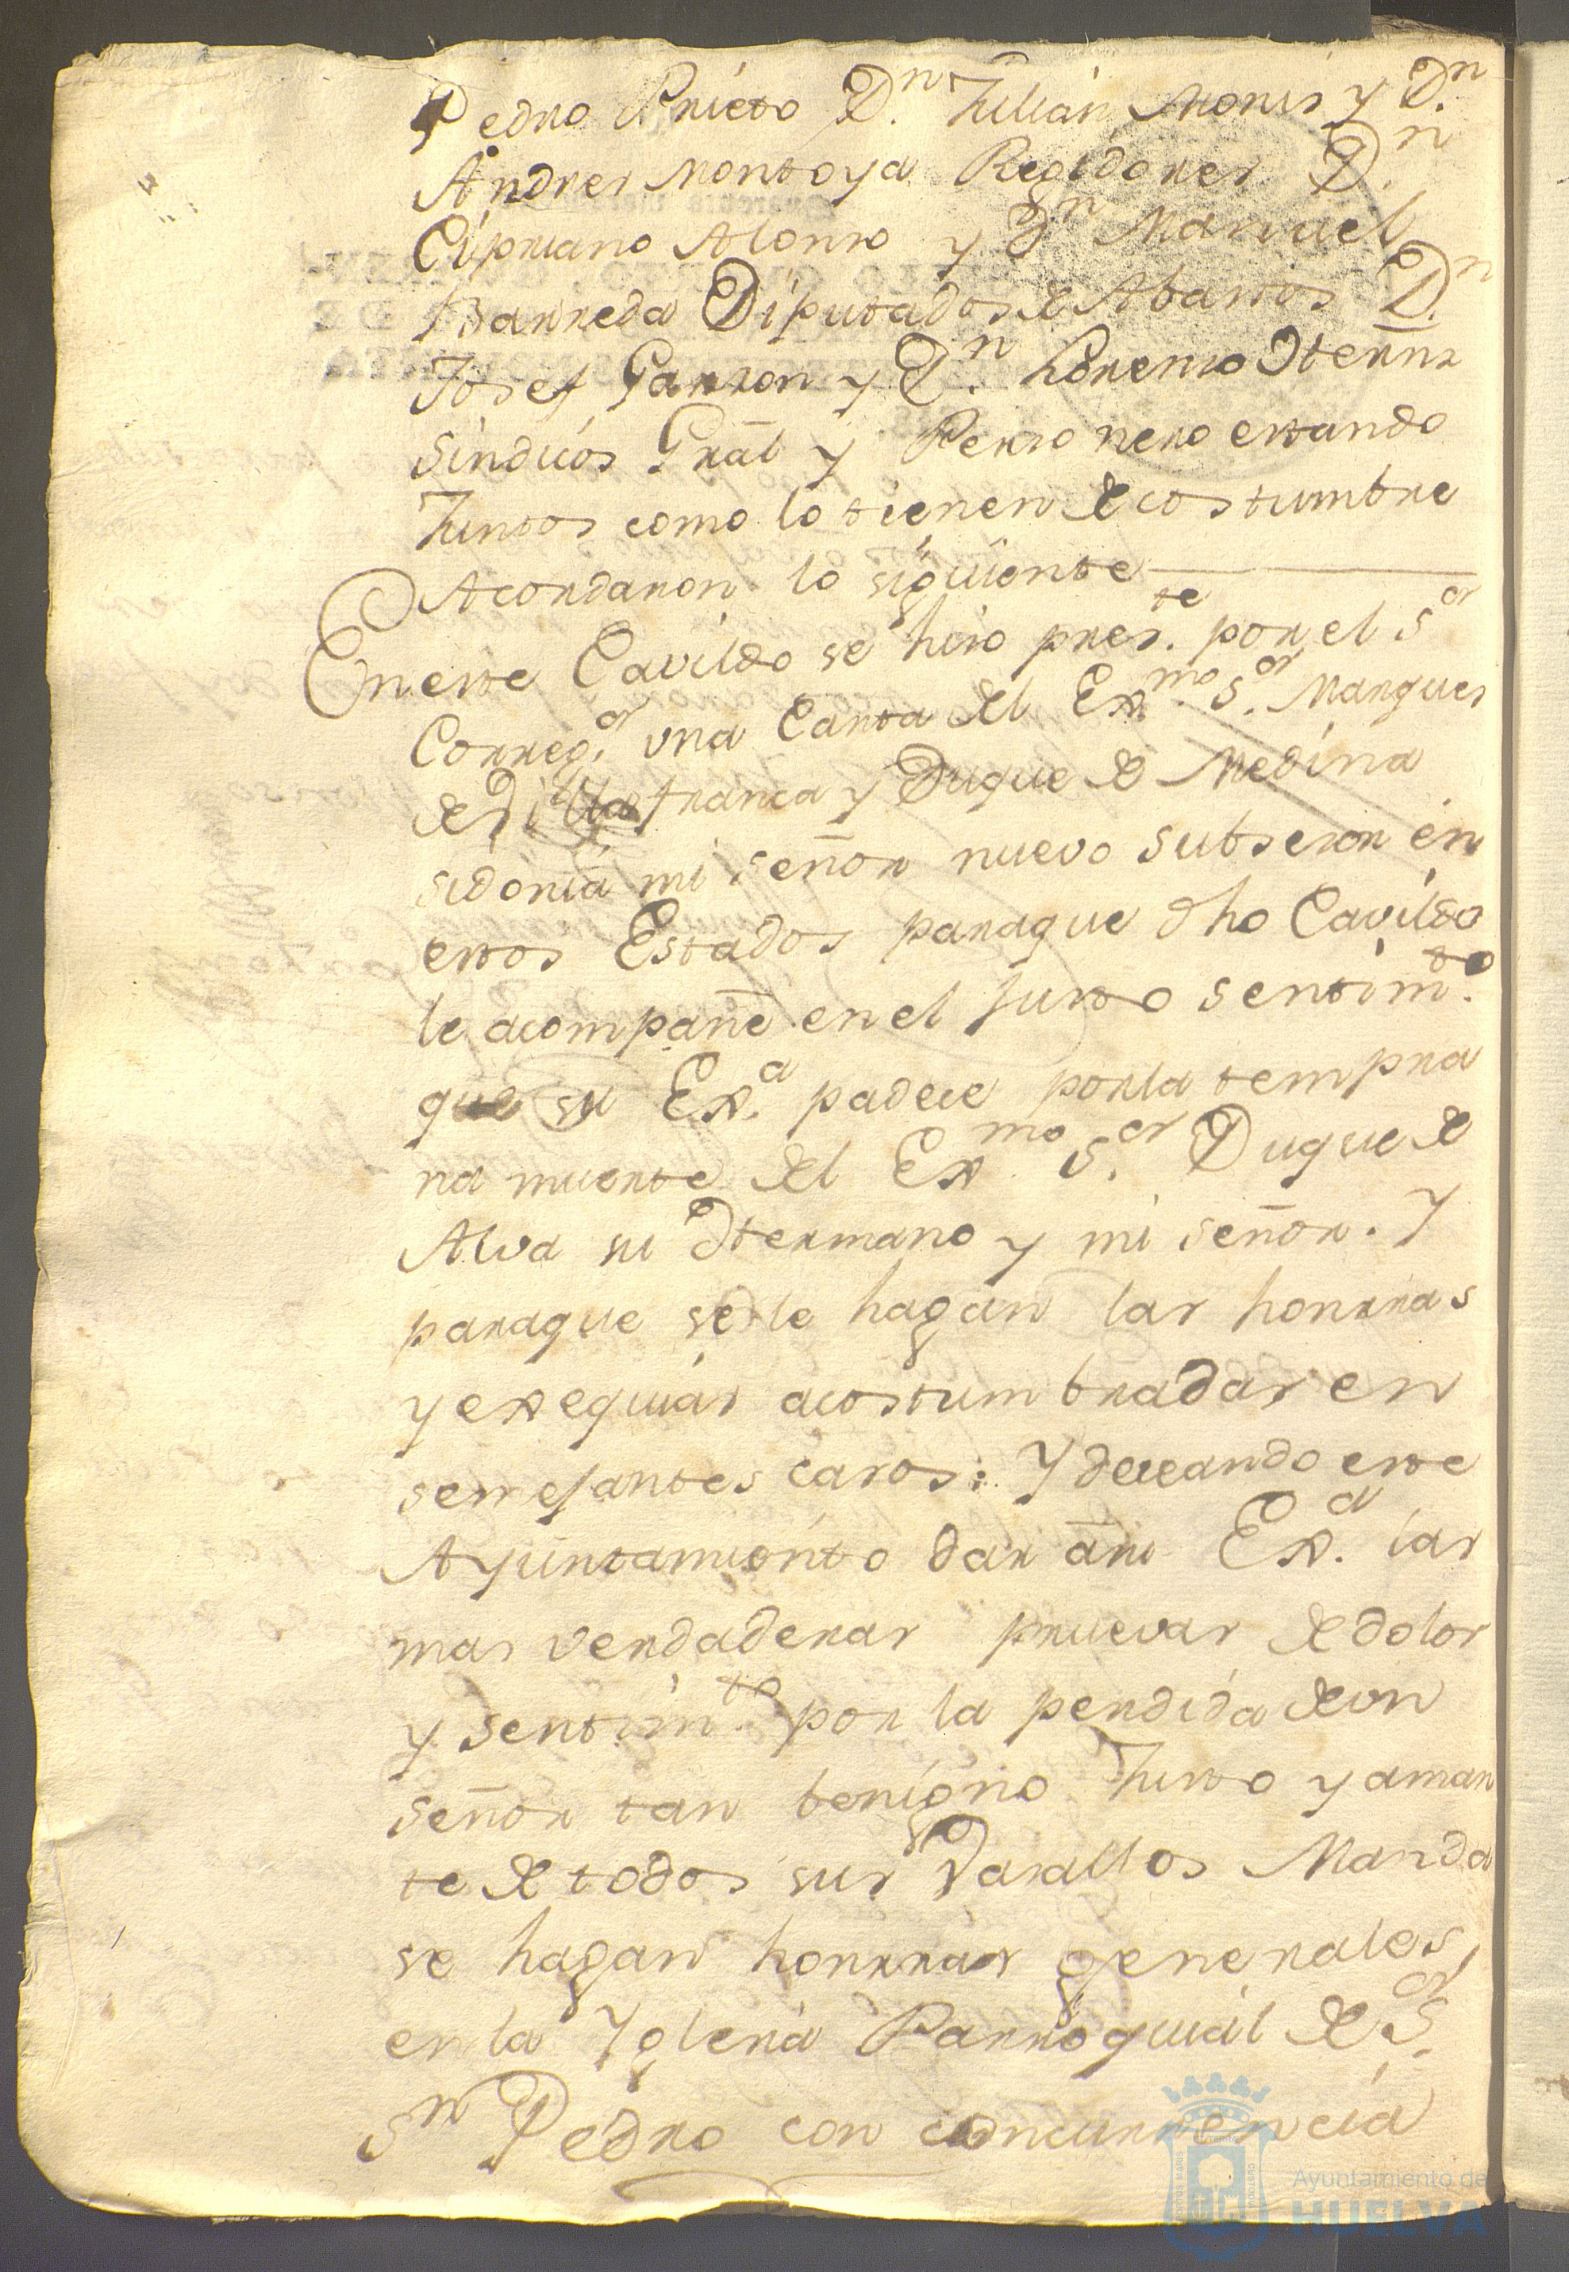 Pedro Prieto Dn. Julian Moris y Dn.
Andres Montoya Regidores Dn.
Cipriano Alonso y Dn Manuel
Barreda Diputados de Abastos Dn.
Josef Garzon y Dn. Lorenzo Hernz
Sindicos Gral y Personero estando
Juntos como lo tienen de costumbre
Acordaron lo siguiente
En este Cavildo se hizo preste. por el Sor
Corregor. una Carta del Exmo. Sor. Marques
de Villafranca y Duque de Medina
sidonia mi señor nuevo subsesor en
estos Estados paraque dho Cavildo
le acompañe en el Justo sentimto.
que su Exa. padece por la tempra
na muerte del Exmo Sor. Duque de
Alva su Hermano y mi señor. Y
paraque se le hagan las honrras
y exequias acostumbradas en
semejantes casos: Y deseando este
Ayuntamiento dar a su Exa. las
mas verdaderas pruevas de dolor
y sentimto. por la perdida de un
señor tan benigno Justo y aman
te de todos sus Vasallos Manda
se hagan honrras generales,
en la Yglesia Parroquial de Sor.
Sn Pedro con concurrencia
Ayuntamiento de
HUELVA